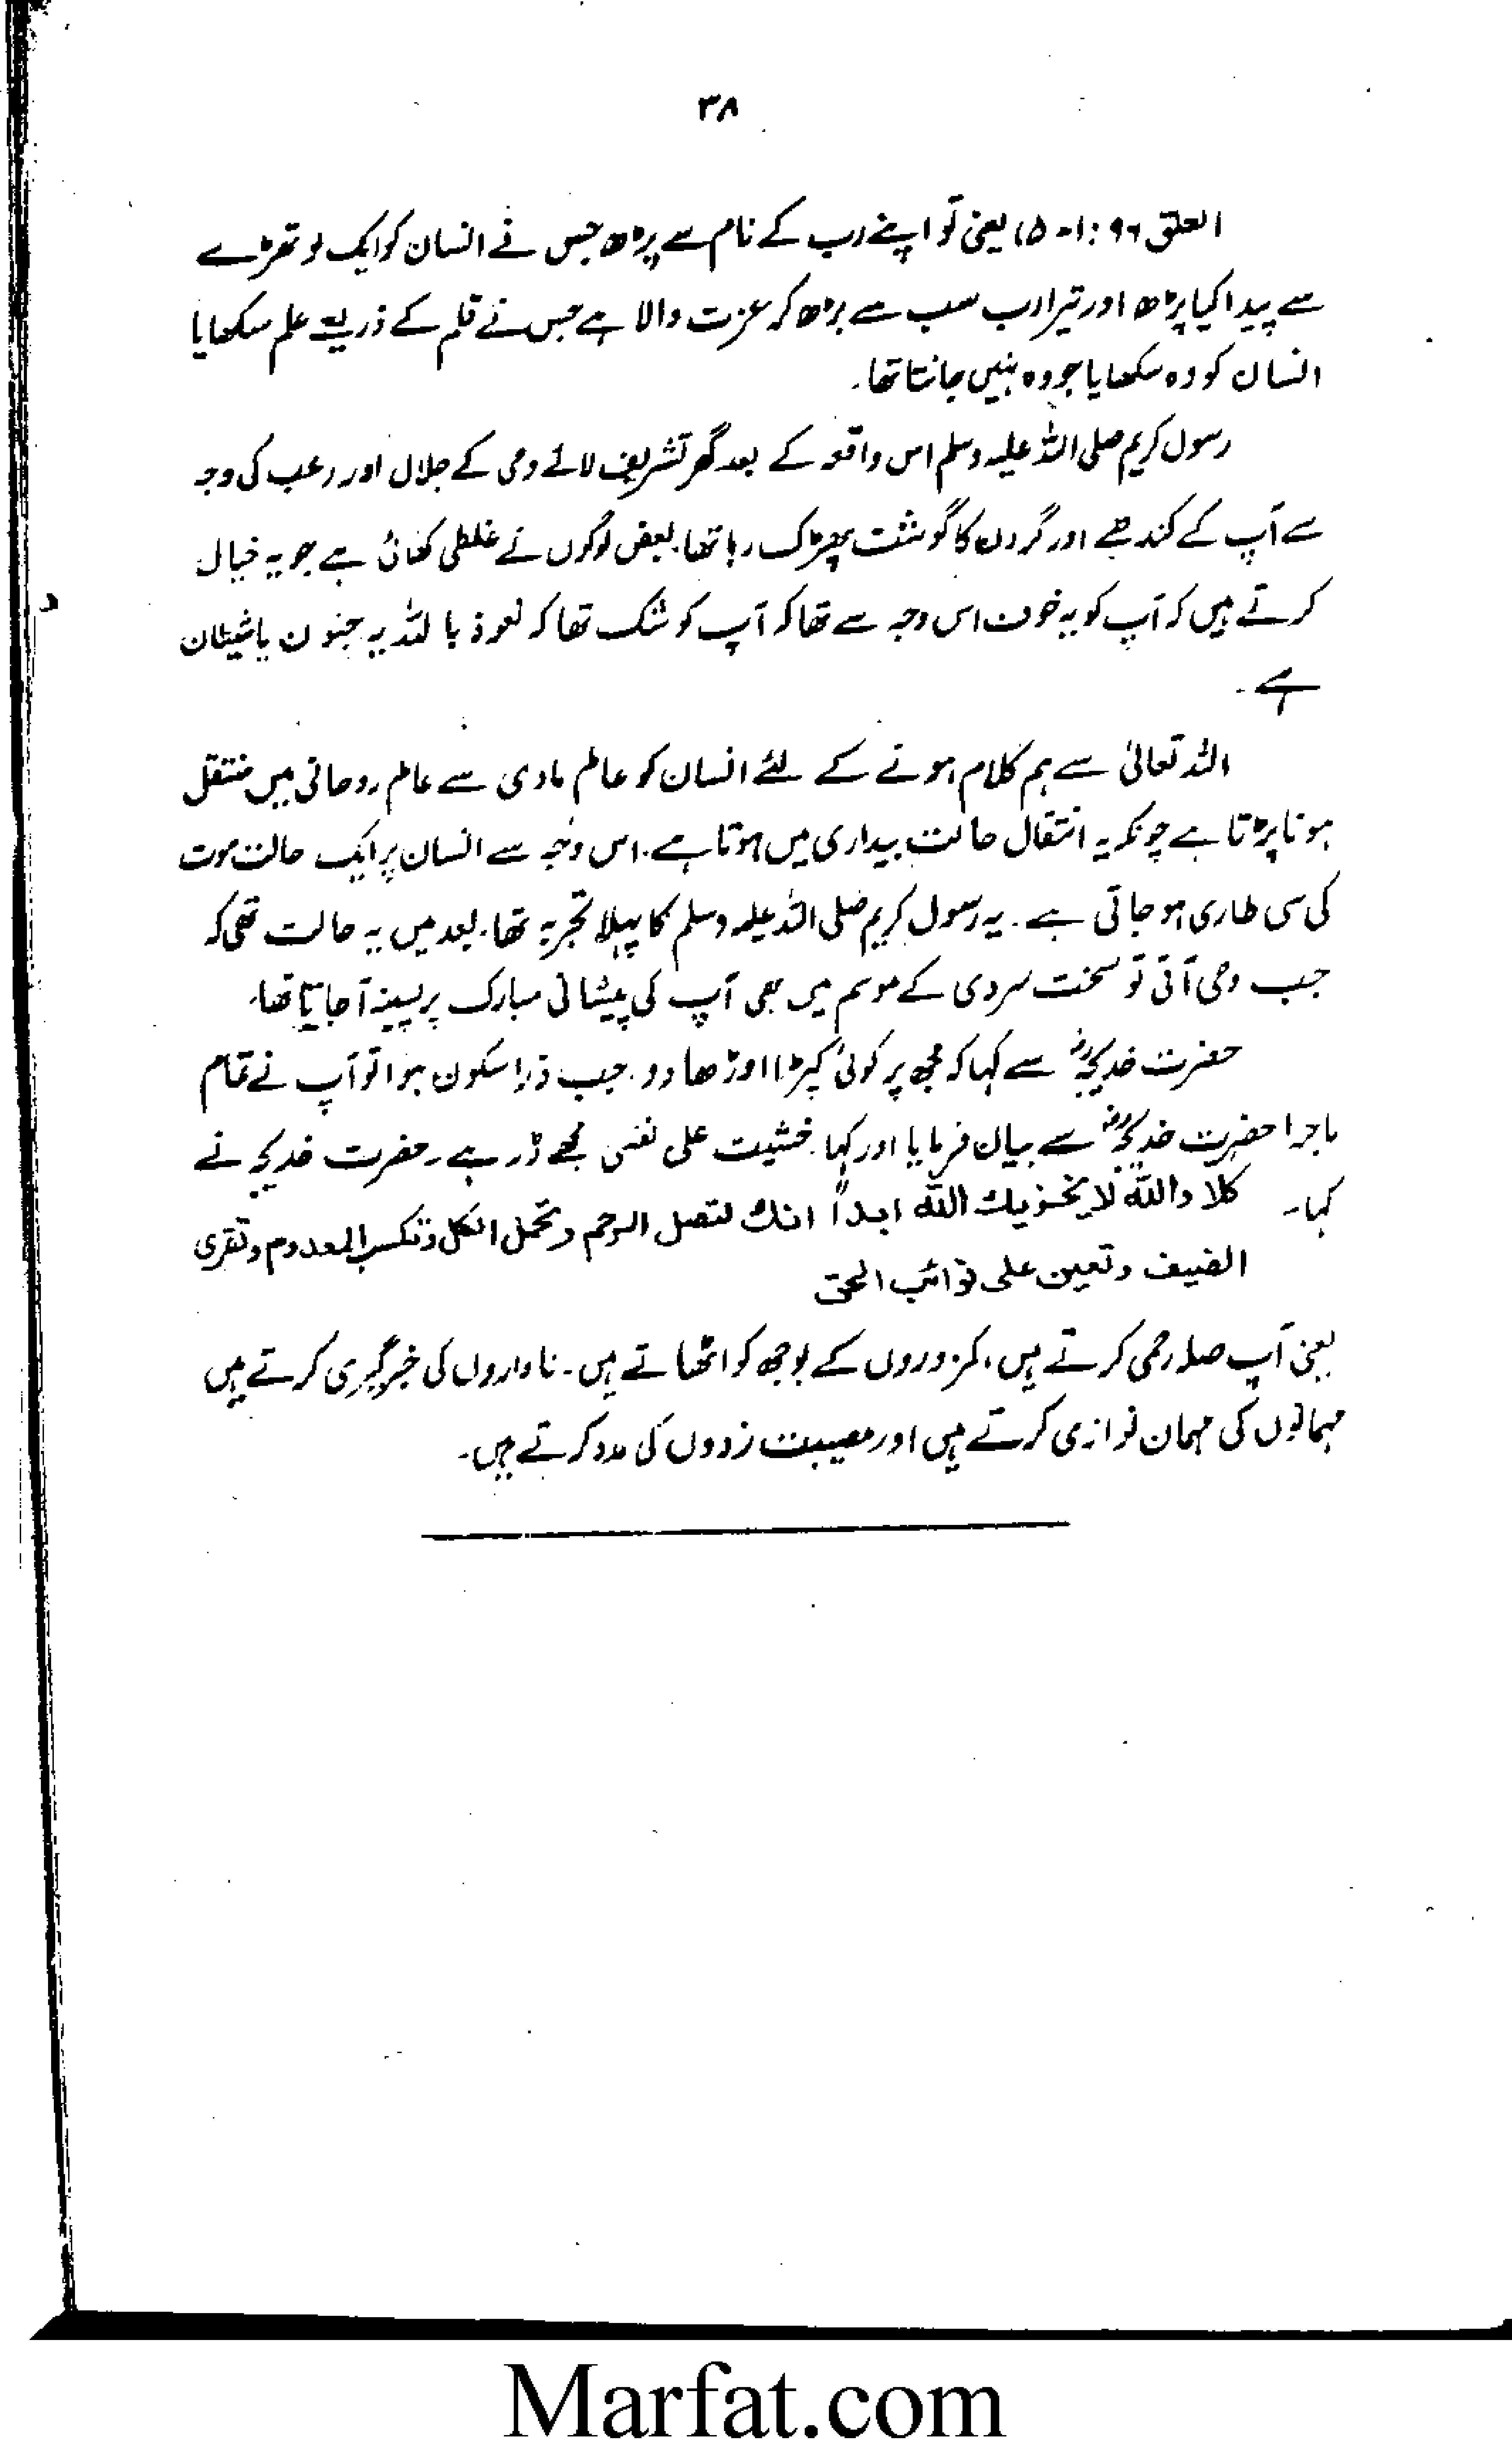 ۳۸
العلق ۹۶ : ۱-۵) یعنی تو اپنے رب کے نام سے پڑھ جس نے انسان کو ایک لوتھڑے
سے پیدا کیا پڑھ اور تیرا رب سب سے بڑھ کر عزت والا ہے جس نے قلم کے ذریعے علم سکھایا
انسان کو وہ سکھایا جو وہ نہیں جانتا تھا۔
رسول کریم صلی اللہ علیہ وسلم اس واقعہ کے بعد گھر تشریف لائے وحی کے جلال اور رعب کی وجہ
سے آپ کے کندھے اور گردن کا گوشت پھڑک رہا تھا۔ بعض لوگوں نے غلطی کھائی ہے جو یہ خیال
کرتے ہیں کہ آپ کو یہ خوف اس وجہ سے تھا کہ آپ کو شک تھا کہ نعوذ باللہ یہ جنون یا شیطان
ہے۔
اللہ تعالیٰ سے ہم کلام ہونے کے لئے انسان کو عالم مادی سے عالم روحانی میں منتقل
ہونا پڑتا ہے چونکہ یہ انتقال حالت بیداری میں ہوتا ہے۔ اس وجہ سے انسان پر ایک حالت موت
کی سی طاری ہو جاتی ہے۔ یہ رسول کریم صلی اللہ علیہ وسلم کا پہلا تجربہ تھا۔ بعد میں یہ حالت تھی کہ
جب وحی آتی تو سخت سردی کے موسم میں بھی آپ کی پیشانی مبارک پر پسینہ آ جاتا تھا۔
حضرت خدیجہؓ سے کہا کہ مجھ پر کوئی کپڑا اوڑھا دو۔ جب ذرا سکون ہوا تو آپ نے تمام
ماجرا حضرت خدیجہؓ سے بیان فرمایا اور کہا خشیت علی نفسی مجھے ڈر ہے۔ حضرت خدیجہ نے
کہا۔ کلا واللہ لا یخزیك اللہ ابداً انك لتصل الرحم وتحمل الکل وتکسب المعدوم وتقری
الضیف وتعین علی نوائب الحق
یعنی آپ صلہ رحمی کرتے ہیں، کمزوروں کے بوجھ کو اٹھاتے ہیں۔ ناداروں کی خبر گیری کرتے ہیں
مہمانوں کی مہمان نوازی کرتے ہیں اور مصیبت زدوں کی مدد کرتے ہیں۔
Marfat.com